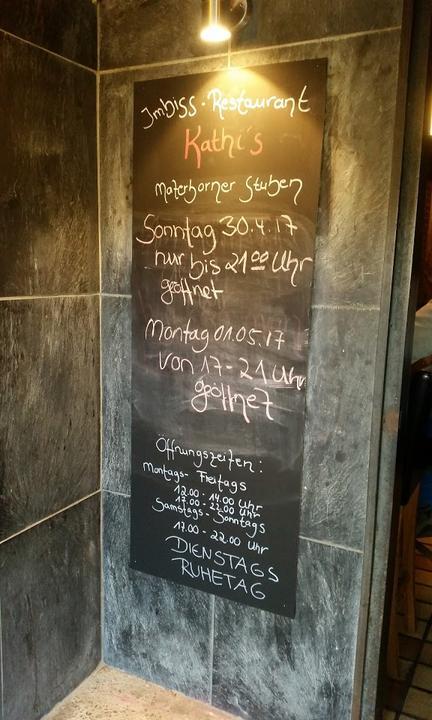 Imbiss · Restaurant
Kathi's
Materborner Stuben
Sonntag 30.4.17
nur bis 21⁰⁰ Uhr
geöffnet
Montag 01.05.17
von 17-21 Uhr
geöffnet
Öffnungszeiten:
Montags- Freitags
12.00 - 14.00 Uhr
17.00 - 22.00 Uhr
Samstags - Sonntags
17.00 - 22.00 Uhr
DIENSTAGS
RUHETAG